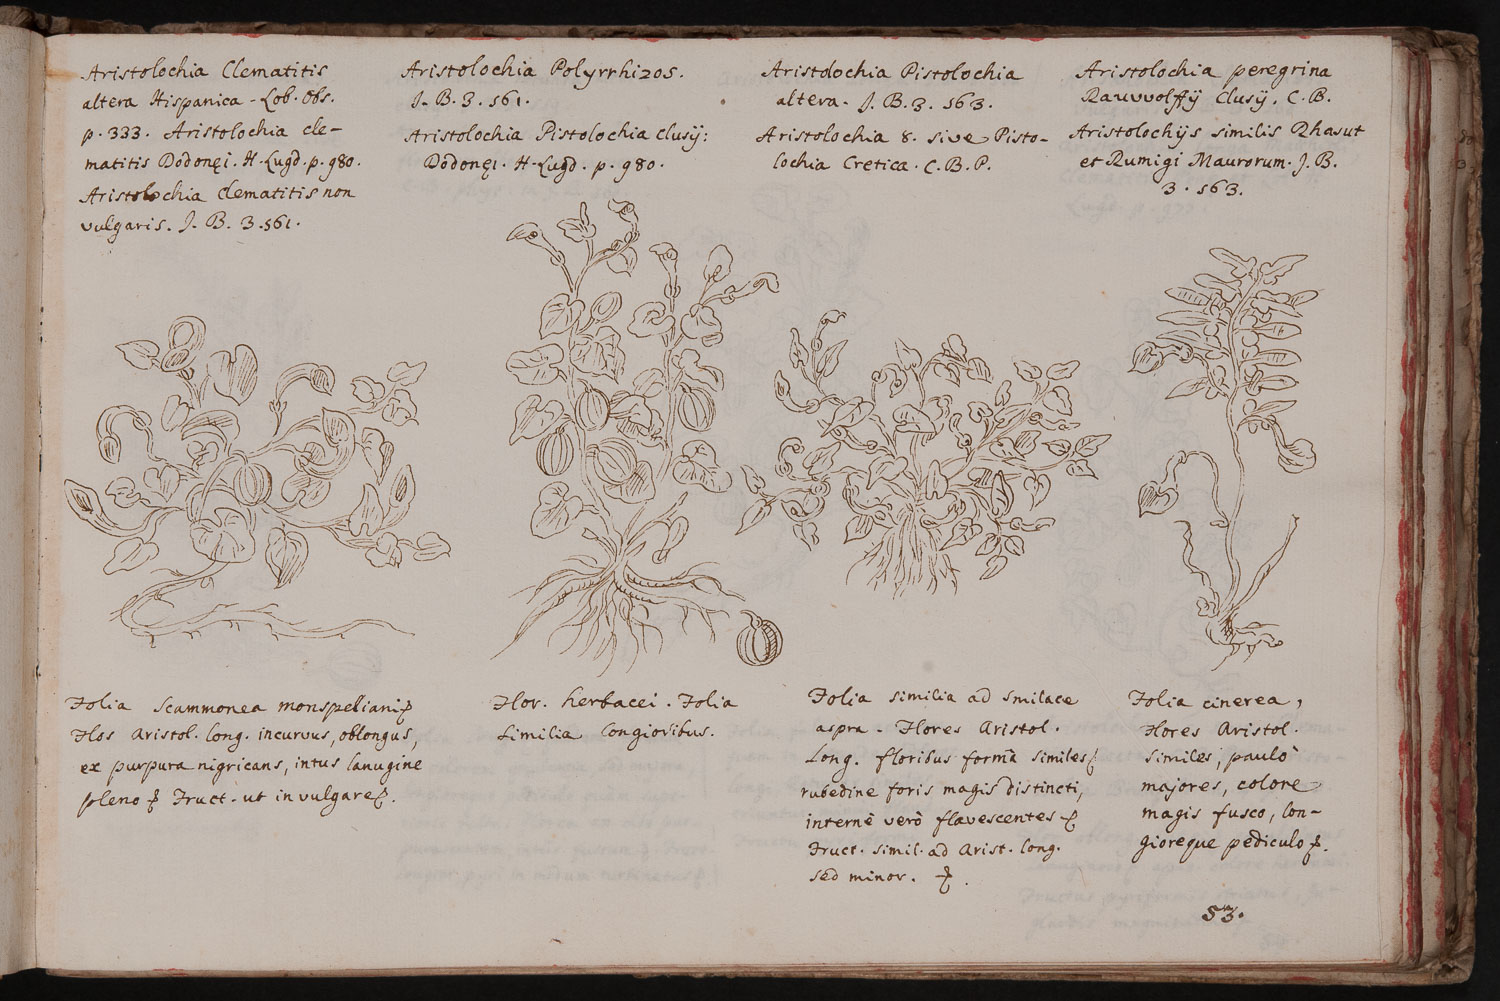 Aristolochia Clematitis
altera Hispanica - Lob. Obs.
p. 333. Aristolochia cle-
matitis Dodonęi. H. Lugd. p. 980.
Aristolochia Clematitis non
vulgaris. J. B. 3. 561.
Aristolochia Polyrrhizos.
J. B. 3. 561.
Aristolochia Pistolochia clusÿ:
Dodonęi. H. Lugd. p. 980.
Aristolochia Pistolochia
altera. J. B. 3. 563.
Aristolochia 8. sive Pisto-
lochia Cretica. C. B. P.
Aristolochia peregrina
Rauwolffÿ Clusÿ. C. B.
Aristolochÿs similis Rhasut
et Rumigi Maurorum. J. B.
3. 563.
Folia Scammonea monspeliani
Flos Aristol. long. incurvus, oblongus,
ex purpura nigricans, intus lanugine
pleno Fruct. ut in vulgare.
Flor. herbacei. Folia
similia longioribus.
Folia similia ad smilace
aspra. Flores Aristol.
Long. floribus formâ similes
rubedine foris magis distincti,
internè verò flavescentes
Fruct. simil. ad Arist. long.
sed minor.
Folia cinerea,
Flores Aristol.
similes, paulò
majores, colore
magis fusco, lon-
gioreque pediculo.
53.